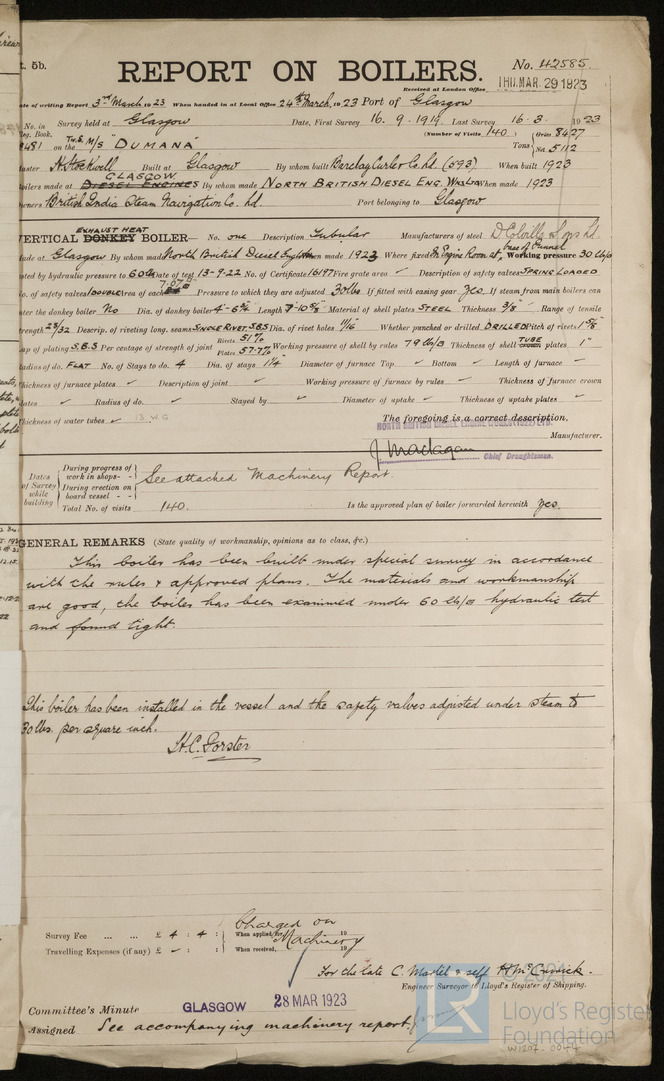 t. 5b.
REPORT ON BOILERS.
No. 42585.
Received at London Office
THU. MAR. 29 1923
ate of writing Report 3rd March 1923 When handed in at Local Office 24th March 1923 Port of Glasgow
No. in Survey held at Glasgow Date, First Survey 16. 9. 1919 Last Survey 16-3 1923
eg. Book. (Number of Visits 140)
8481 on the Tw. S. M/S "DUMANA" Tons Gross 8427 Net 5112
aster A Stockwell Built at Glasgow By whom built Barclay Curle & Co Ltd (593) When built 1923
oilers made at GLASGOW DIESEL ENGINES By whom made NORTH BRITISH DIESEL ENG. WKS Ltd When made 1923
wners British India Steam Navigation Co. Ld. Port belonging to Glasgow
VERTICAL EXHAUST HEAT DONKEY BOILER— No. one Description Tubular Manufacturers of steel D. Colville & Sons Ld.
ade at Glasgow By whom made North British Diesel Eng Wks When made 1922 Where fixed In Engine Room at base of Funnel Working pressure 30 lb/□
sted by hydraulic pressure to 60 lb Date of test 13-9-22 No. of Certificate 16197 Fire grate area ✓ Description of safety valves SPRING LOADED
o. of safety valves 1 DOUBLE Area of each 7.07 □" Pressure to which they are adjusted 30 lbs If fitted with easing gear Yes. If steam from main boilers can
ter the donkey boiler No Dia. of donkey boiler 4'-6¾" Length 7'-10⅝" Material of shell plates STEEL Thickness 3/8" Range of tensile
rength 28/32 Descrip. of riveting long. seams SINGLE RIVET-S.B.S Dia. of rivet holes 11/16 Whether punched or drilled DRILLED Pitch of rivets 1⅝"
ap of plating S.B.S Per centage of strength of joint Rivets 51% Plates 57.7% Working pressure of shell by rules 79 lb/□ Thickness of shell TUBE plates 1"
adius of do. FLAT No. of Stays to do. 4 Dia. of stays 1¼" Diameter of furnace Top ✓ Bottom ✓ Length of furnace ✓
hickness of furnace plates ✓ Description of joint ✓ Working pressure of furnace by rules ✓ Thickness of furnace crown
lates ✓ Radius of do. ✓ Stayed by ✓ Diameter of uptake ✓ Thickness of uptake plates ✓
hickness of water tubes ✓ 13 W.G
The foregoing is a correct description,
NORTH BRITISH DIESEL ENGINE WORKS (1922) LTD.
J Maclagan Chief Draughtsman. Manufacturer.
Dates of Survey while building
During progress of work in shops - -
During erection on board vessel - -
See attached Machinery Report.
Total No. of visits 140. Is the approved plan of boiler forwarded herewith Yes.
GENERAL REMARKS (State quality of workmanship, opinions as to class, &c.)
This boiler has been built under special survey in accordance
with the rules & approved plans. The materials and workmanship
are good, the boiler has been examined under 60 lb/□ hydraulic test
and found tight.
This boiler has been installed in the vessel and the safety valves adjusted under steam to
30 lbs. per square inch.
H.C. Forster
Survey Fee ... ... £ 4 : 4 : Charged on When applied for 19
Travelling Expenses (if any) £ ✓ : : Machinery When received, 19
For the late C. Martel & self
Engineer Surveyor to Lloyd's Register of Shipping.
Committee's Minute GLASGOW 28 MAR 1923
Assigned See accompanying machinery report.
© 2021
LR
Lloyd's Register
Foundation
W1207-0044